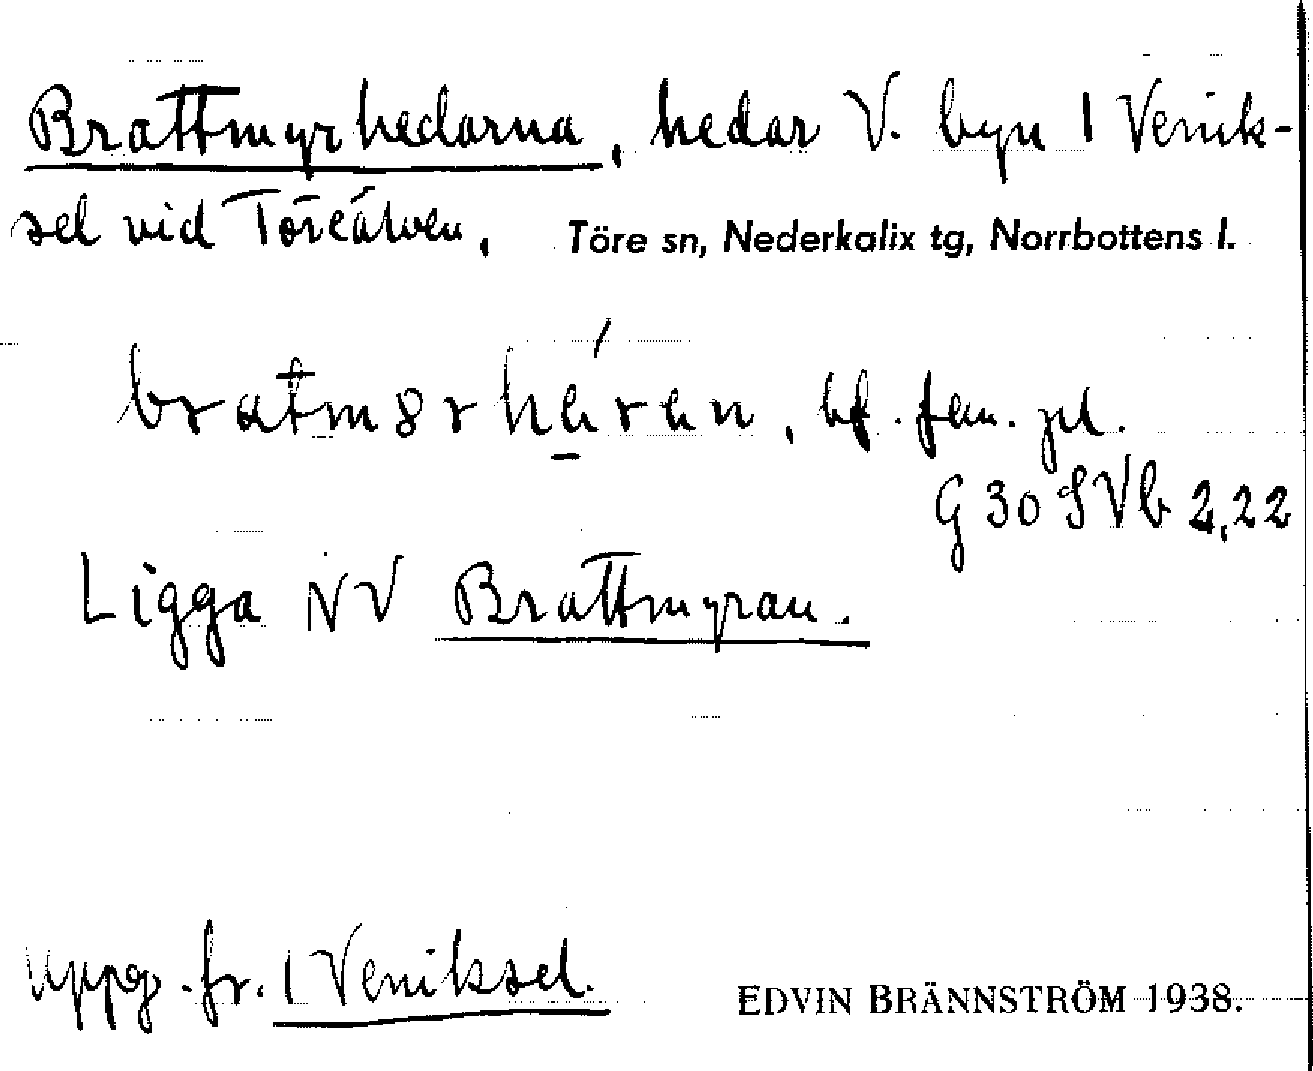 Brattmyrhedarna, hedar V. byn 1 Venik-
sel vid Töreälven, Töre sn, Nederkalix tg, Norrbottens l.
bf. fem. pl.
G 30 SVb 2,22
Ligga NV Brattmyran.
Uppg. fr. 1 Veniksel.
EDVIN BRÄNNSTRÖM 1938.